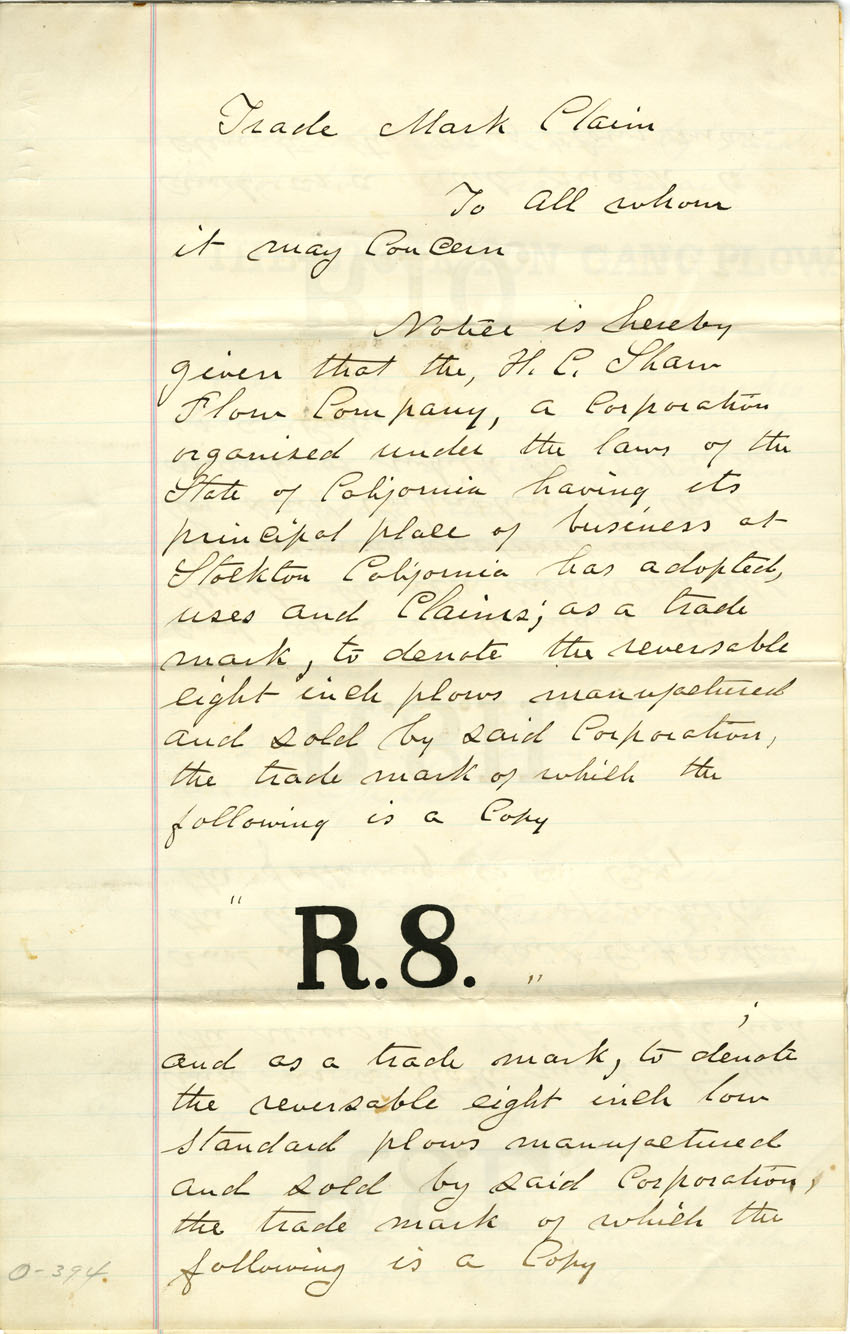 Trade Mark Claim
To all whom
it may Concern
Notice is hereby
given that the, H. C. Shaw
Plow Company, a Corporation
organized under the laws of the
State of California having its
principal place of business at
Stockton California has adopted,
uses and Claims; as a trade
mark, to denote the reversable
eight inch plows manufactured
and sold by said Corporation,
the trade mark of which the
following is a Copy
" R.8. "
;
and as a trade mark, to denote
the reversable eight inch low
standard plows manufactured
and sold by said Corporation,
the trade mark of which the
following is a Copy
O-394.